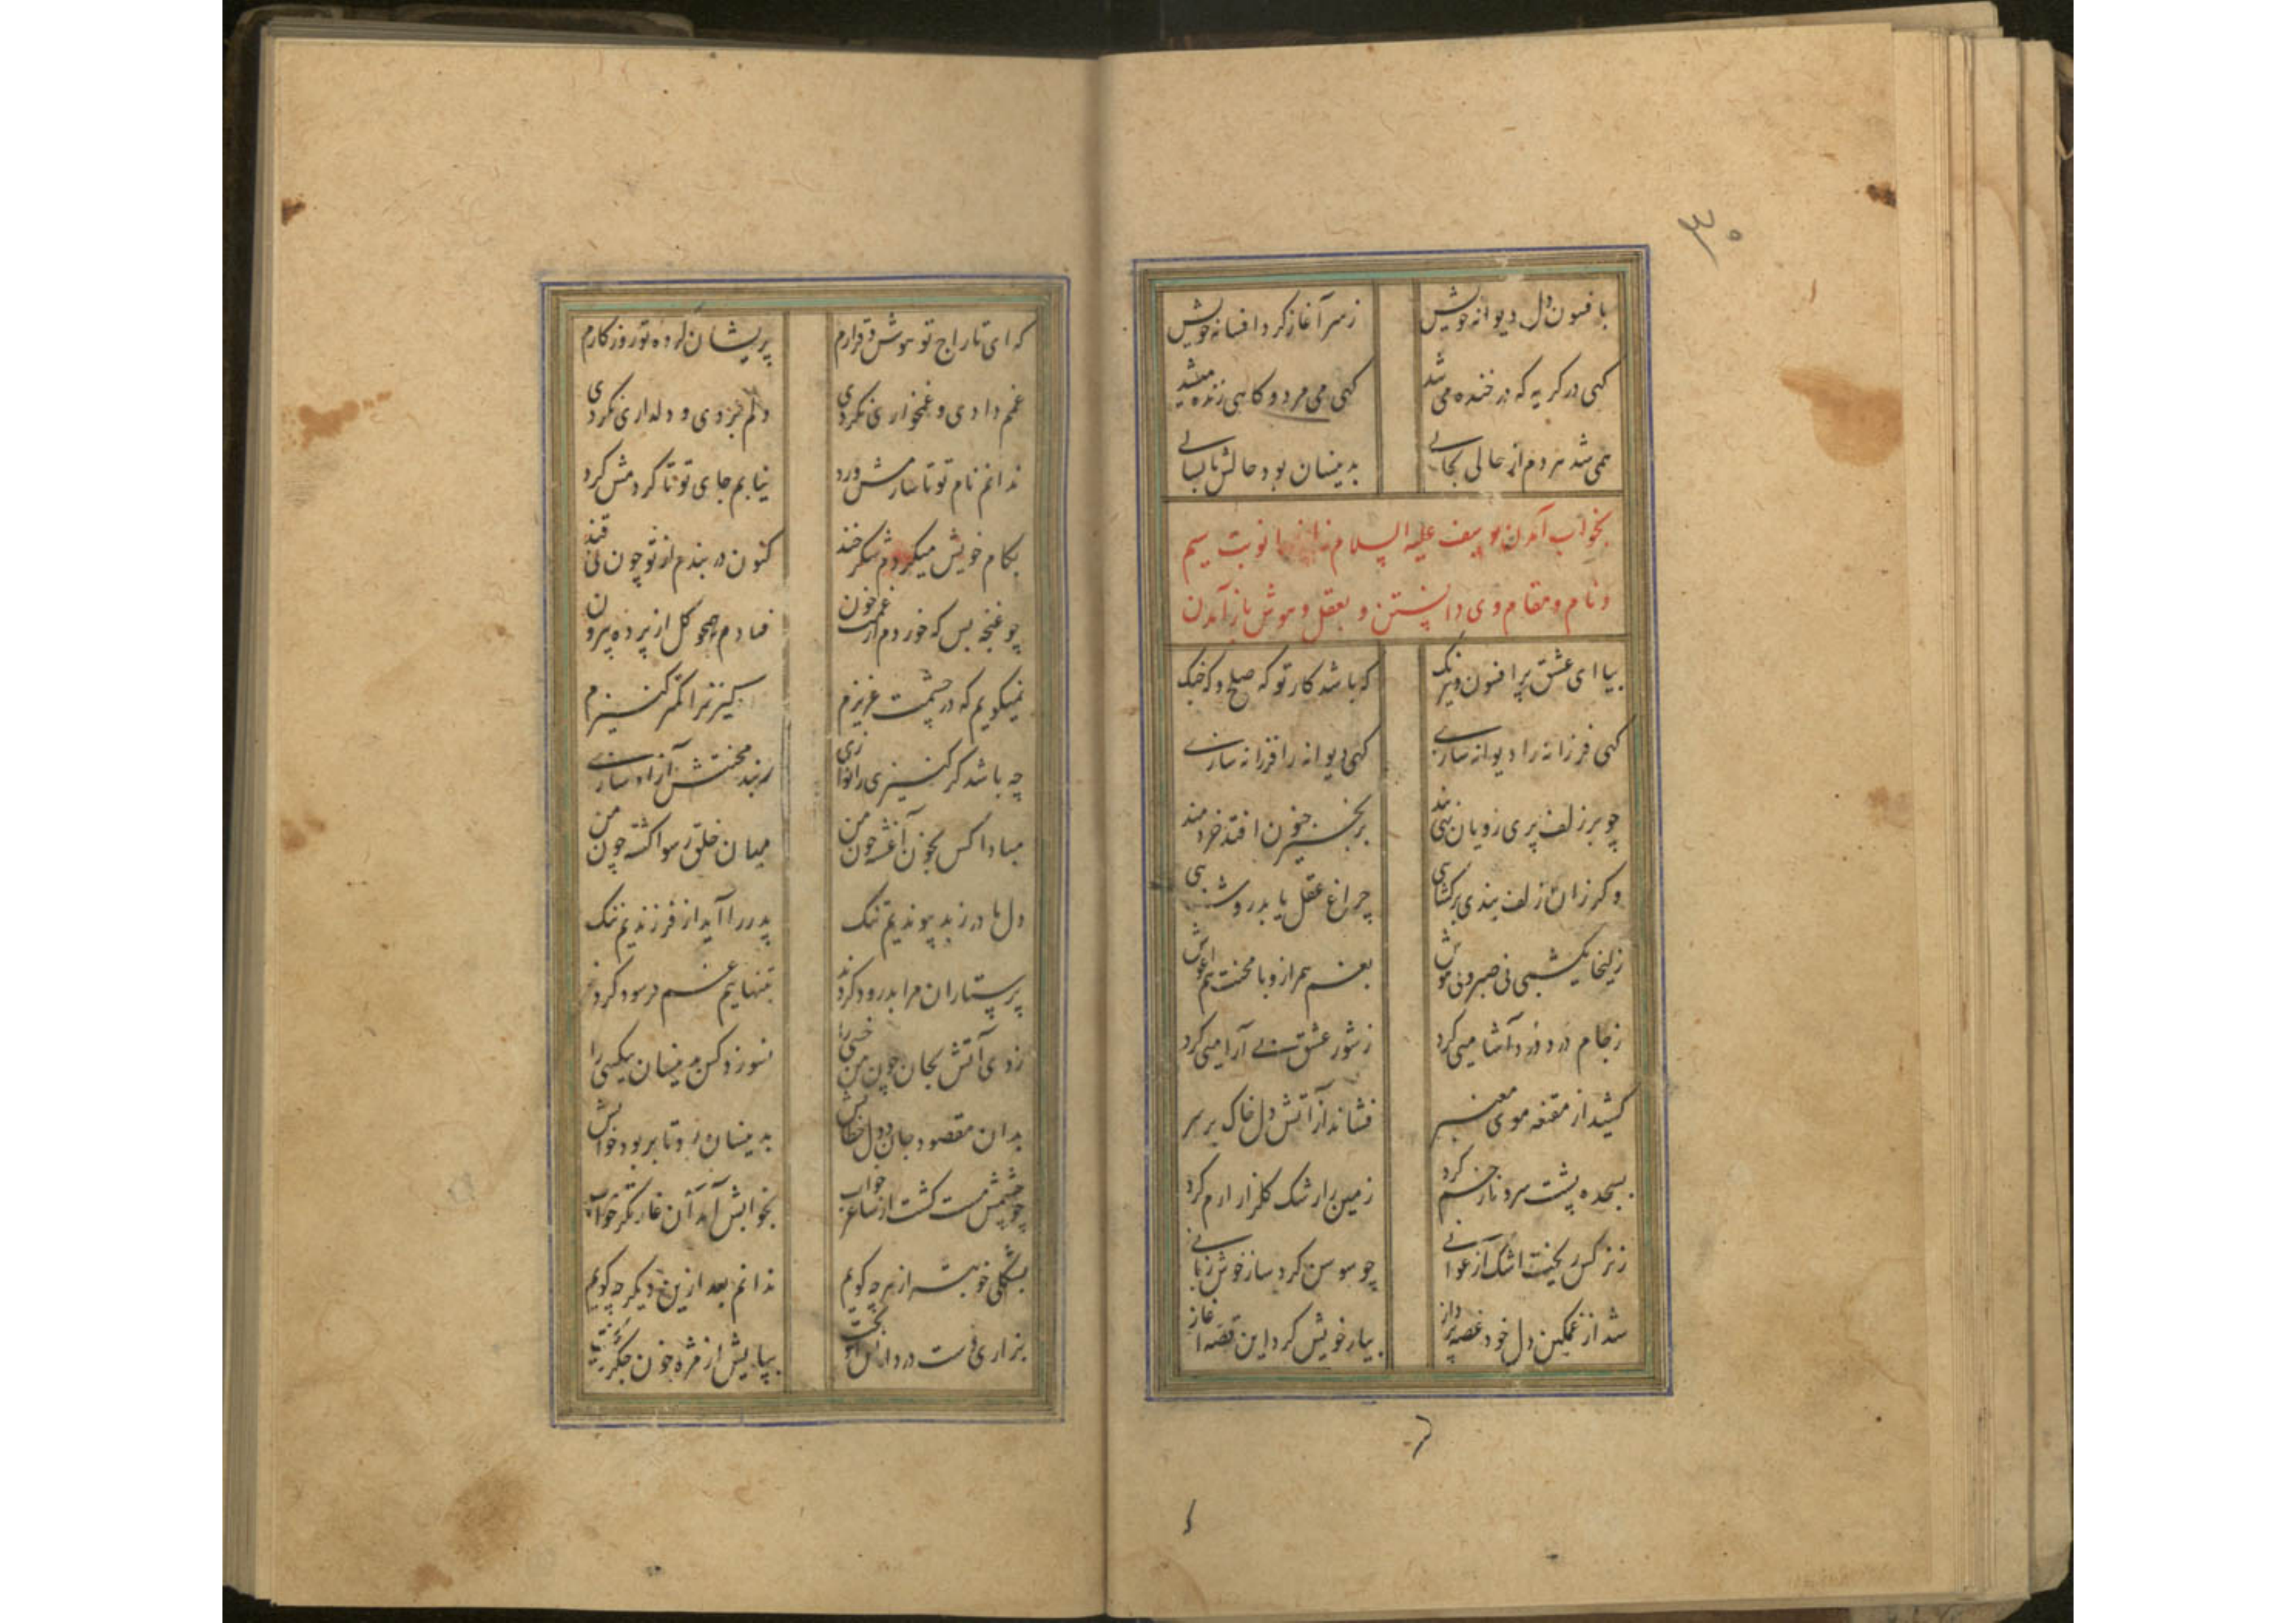 ۳۰
با فسون دل دیوانه خویش زسر آغاز کرد افسانه خویش
کهی در کریه که در خنده می شد کهی می مرد و کاهی زنده میشد
همی شد هر دم از حالی بحالی بدینسان بود حالش تا بسالی
بخواب آمدن یوسف علیه السلام زلیخا را نوبت سیم
و نام و مقام وی دانستن و بعقل و هوش باز آمدن
بیا ای عشق پر افسون و نیرنک که باشد کار تو که صلح و که جنک
کهی فرزانه را دیوانه سازی کهی دیوانه را فرزانه سازی
چو بر زلف پری رویان نهی بند بزنجیر جنون افتد خردمند
و کر زان زلف بندی برکشایی چراغ عقل یابد روشنایی
زلیخا یکشبی نی صبر و نی هوش بغم همراز و با محنت هم اغوش
زجام درد درد آشامیی کرد زشور عشق بی آرامیی کرد
کشید از مقنعه موی معنبر فشاند از آتش دل خاک بر سر
بسجده پشت سرو ناز خم کرد زمین را رشک کلزار ارم کرد
زنرکس ریخت اشک ارغوانی چو سوسن کرد ساز خوش زبانی
شد از غمکین دل خود غصه پرداز بیار خویش کرد این قصه اغاز
که ای تاراج تو هوش و قرارم پریشان کرده تو روزکارم
غمم دادی و غمخواری نکردی دلم بردی و دلداری نکردی
ندانم نام تو تا سازمش ورد نیابم جای تو تا کردمش کرد
بکام خویش میکردم شکرخند کنون در بندم از تو چون نی قند
چو غنچه بس که خوردم از غمت خون فتادم همچو کل از پرده بیرون
نمیکویم که در چشمت عزیزم کنیزت را کمتر کنیزم
چه باشد کر کنیزی را نوازی زبند محنتش آزاد سازی
مبادا کس بخون آغشته چون من میان خلق رسوا کشته چون من
دل مادر زبد پیوندیم تنک پدر را آید از فرزندیم ننک
پرستاران مرا بدرود کردند بتنهاییم غم فرسود کردند
زدی آتش بجان چون من خسی را نسوزد کس بدینسان بیکسی را
بدان مقصود جان و دل خطابش بدینسان بود تا بربود خوابش
چو چشمش مست کشت از ساغر خواب بخوابش آمد آن غارتکر خواب
بشکلی خوبتر از هر چه کویم ندانم بعد ازین دیکر چه کویم
بزاری دست در دامانش آویخت بپایش از مژه خون جکر ریخت